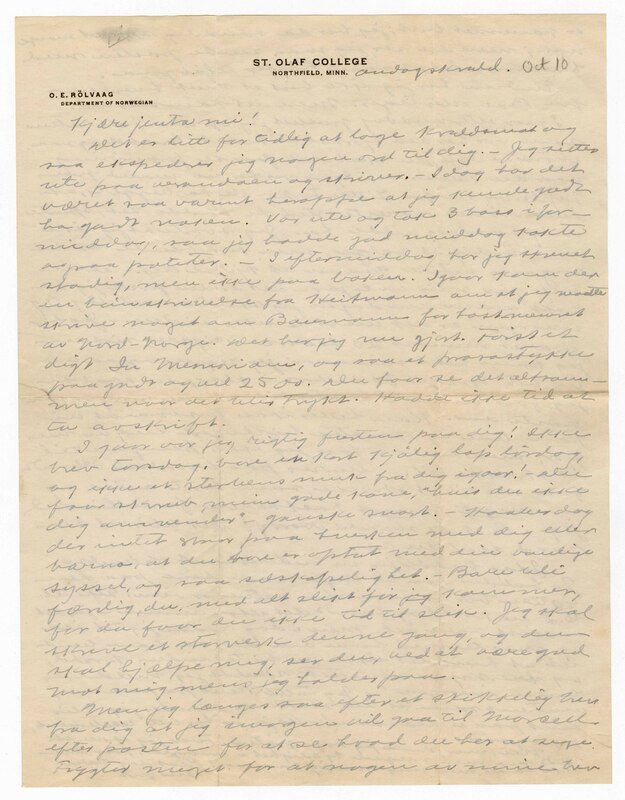 ST. OLAF COLLEGE
NORTHFIELD, MINN.
onsdagskvæld. Oct 10
O. E. RÖLVAAG
DEPARTMENT OF NORWEGIAN
Kjære jenta mi!
Det er litt for tidlig at lage kveldsmat og
saa ekspederer jeg nogen ord til dig. – Jeg sitter
ute paa verandaen og skriver. – Idag har det
været saa varmt heroppe at jeg kunde godt
ha gaat naken. Var ute og tok 3 bass i for-
middag, saa jeg hadde god middag kokte
ogsaa poteter. – I eftermiddag har jeg skrevet
stadig, men ikke paa boken. Igaar kom der
en bønskrivelse fra Heitmann om at jeg maatte
skrive noget om Baumann for
av Nord-Norge. Det har jeg nu gjort. Først et
digt In Memoriam, og saa et prosastykke
paa godt og vel 2500. Du faar se det altsam-
men naar det blir trykt. Hadde ikke tid at
ta avskrift.
I gaar var jeg rigtig fusten paa dig! Ikke
brev torsdag, bare en kort kjølig lap lørdag,
og ikke et muk fra dig igaar! – du
faar , min gode kone, "hvis du ikke
dig omvender" – ganske snart. –
der intet paa hverken med dig eller
barna, at du bare er optat med din vanlige
syssel, og saa selskapelighet. – Bare bli
færdig, du, med alt slikt før jeg kommer,
for da faar du ikke tid til slik. Jeg skal
skrive et storverk denne gang, og du
skal hjælpe mig, ser du, ved at være god
mot mig mens jeg holder paa.
Men jeg længes saa efter et skikkelig brev
fra dig at jeg imorgen vil gaa til Marcell
efter posten for at se hvad du har at sige.
Frygter meget for at nogen av mine brev